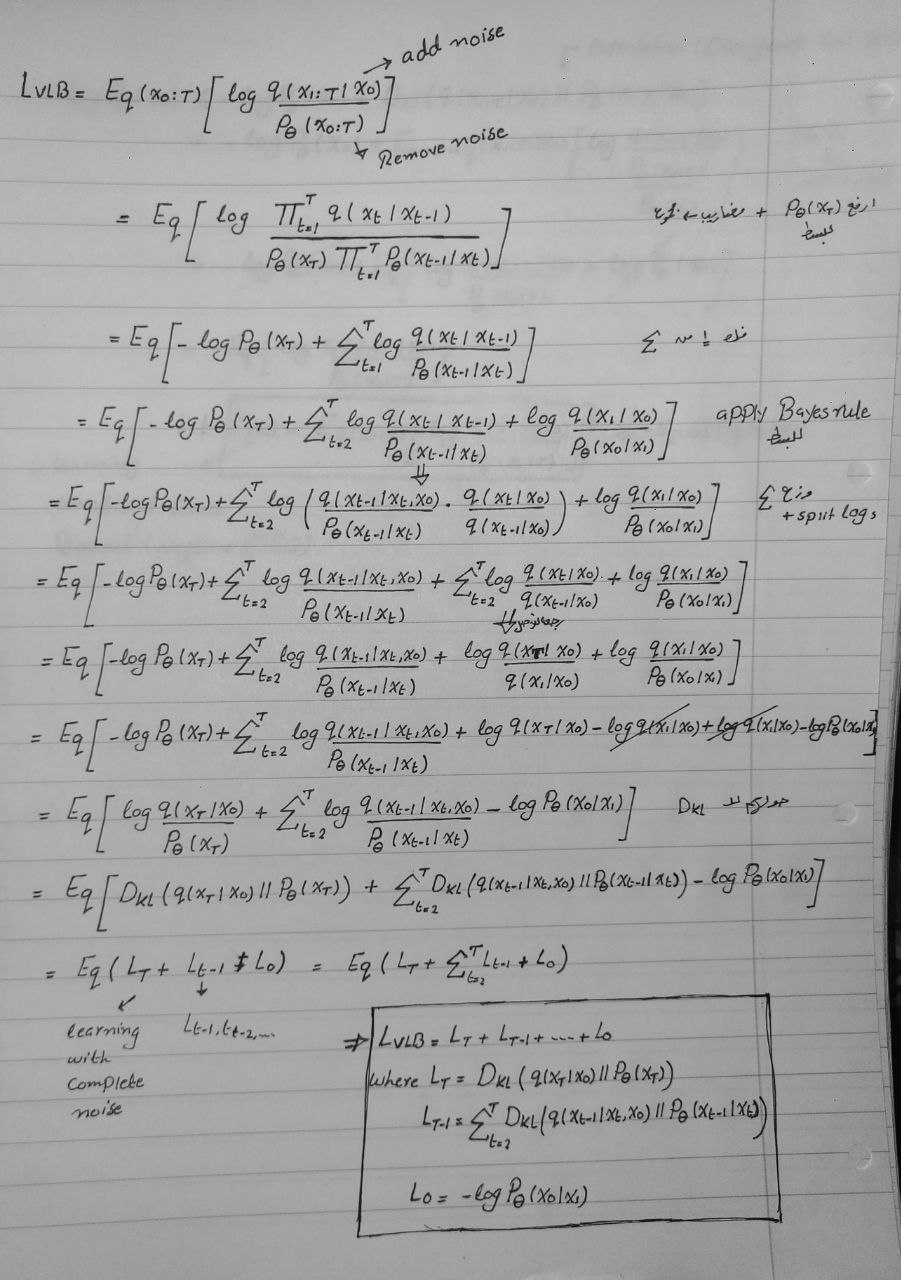 → add noise
L_VLB = E_q(x_0:T) [ log q(x_1:T | x_0) / P_θ(x_0:T) ]
↳ Remove noise
= E_q [ log ∏_{t=1}^T q(x_t | x_t-1) / P_θ(x_T) ∏_{t=1}^T P_θ(x_t-1 | x_t) ] + ارفع P_θ(x_T)
للبسط
= E_q [ - log P_θ(x_T) + ∑_{t=1}^T log q(x_t | x_t-1) / P_θ(x_t-1 | x_t) ] ∑
= E_q [ - log P_θ(x_T) + ∑_{t=2}^T log q(x_t | x_t-1) / P_θ(x_t-1 | x_t) + log q(x_1 | x_0) / P_θ(x_0 | x_1) ] apply Bayes rule
⇓ للبسط
= E_q [ - log P_θ(x_T) + ∑_{t=2}^T log ( q(x_t-1 | x_t, x_0) / P_θ(x_t-1 | x_t) · q(x_t | x_0) / q(x_t-1 | x_0) ) + log q(x_1 | x_0) / P_θ(x_0 | x_1) ] وزع ∑
+ split logs
= E_q [ - log P_θ(x_T) + ∑_{t=2}^T log q(x_t-1 | x_t, x_0) / P_θ(x_t-1 | x_t) + ∑_{t=2}^T log q(x_t | x_0) / q(x_t-1 | x_0) + log q(x_1 | x_0) / P_θ(x_0 | x_1) ]
⇓
= E_q [ - log P_θ(x_T) + ∑_{t=2}^T log q(x_t-1 | x_t, x_0) / P_θ(x_t-1 | x_t) + log q(x_T | x_0) / q(x_1 | x_0) + log q(x_1 | x_0) / P_θ(x_0 | x_1) ]
= E_q [ - log P_θ(x_T) + ∑_{t=2}^T log q(x_t-1 | x_t, x_0) / P_θ(x_t-1 | x_t) + log q(x_T | x_0) - log q(x_1 | x_0) + log q(x_1 | x_0) - log P_θ(x_0 | x_1) ]
= E_q [ log q(x_T | x_0) / P_θ(x_T) + ∑_{t=2}^T log q(x_t-1 | x_t, x_0) / P_θ(x_t-1 | x_t) - log P_θ(x_0 | x_1) ] D_KL
= E_q [ D_KL ( q(x_T | x_0) || P_θ(x_T) ) + ∑_{t=2}^T D_KL ( q(x_t-1 | x_t, x_0) || P_θ(x_t-1 | x_t) ) - log P_θ(x_0 | x_1) ]
= E_q ( L_T + L_t-1 + L_0 ) = E_q ( L_T + ∑_{t=2}^T L_t-1 + L_0 )
learning
with
complete
noise
L_t-1, L_t-2, ...
⇒ L_VLB = L_T + L_T-1 + ... + L_0
where L_T = D_KL ( q(x_T | x_0) || P_θ(x_T) )
L_T-1 = ∑_{t=2}^T D_KL ( q(x_t-1 | x_t, x_0) || P_θ(x_t-1 | x_t) )
L_0 = - log P_θ(x_0 | x_1)